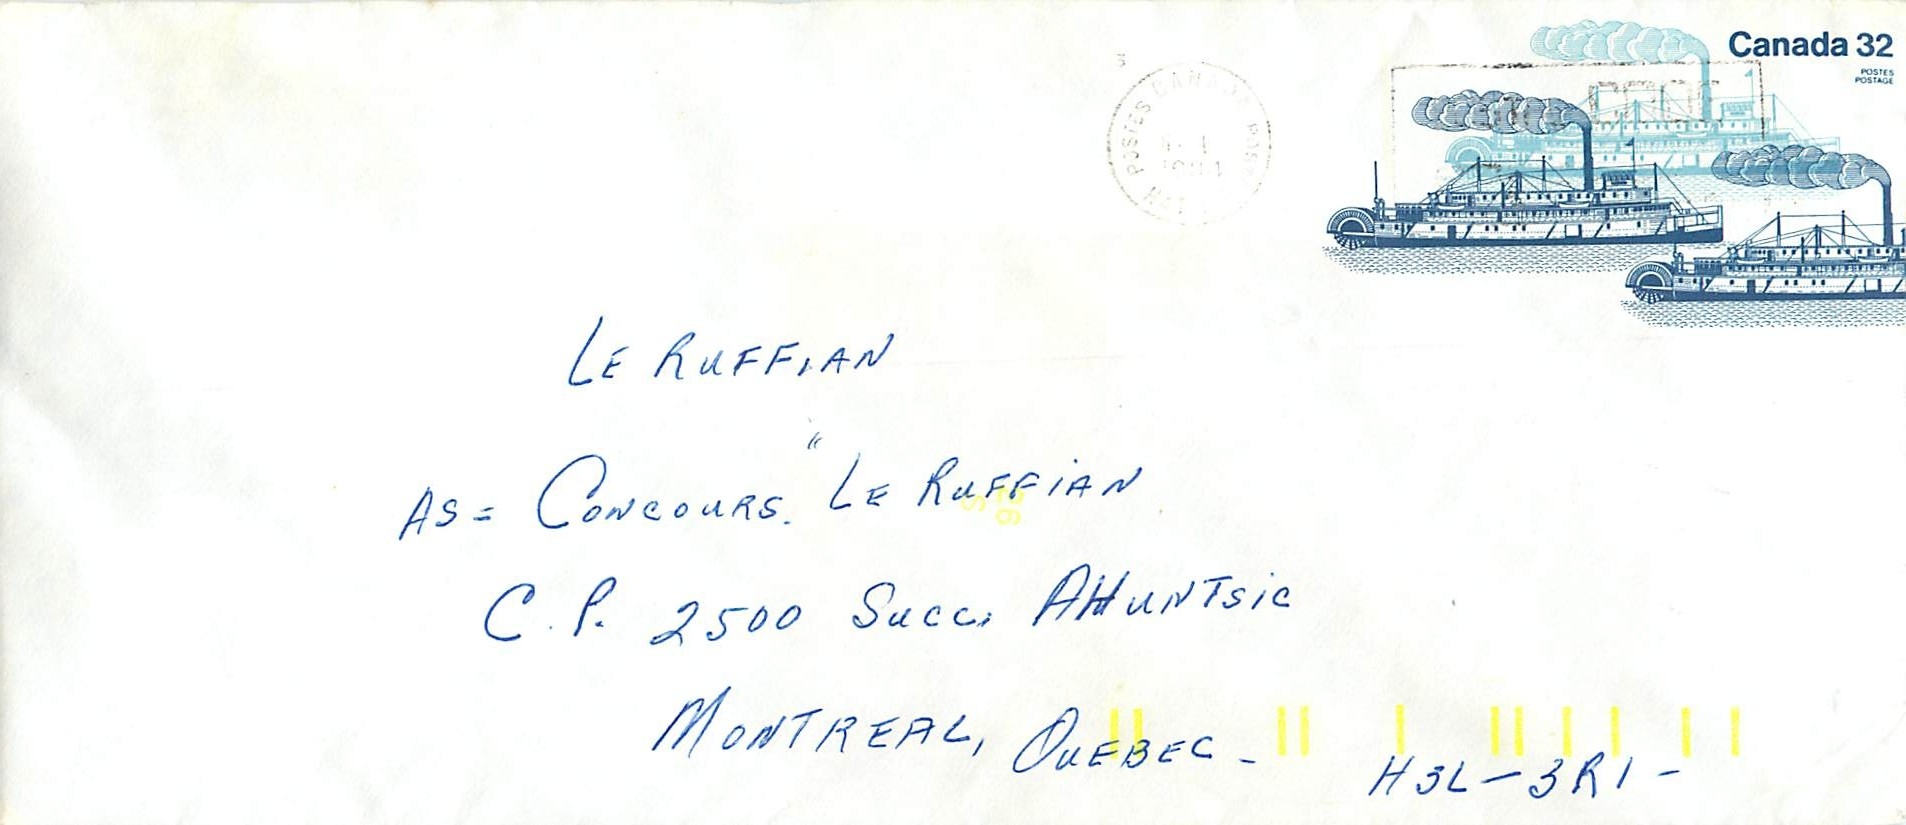 Canada 32
POSTES
POSTAGE
POSTES CANADA POST
LE RUFFIAN
AS = CONCOURS. "LE RUFFIAN
C.P. 2500 SUCC. AHUNTSIC
MONTREAL, QUEBEC -
H3L-3R1-